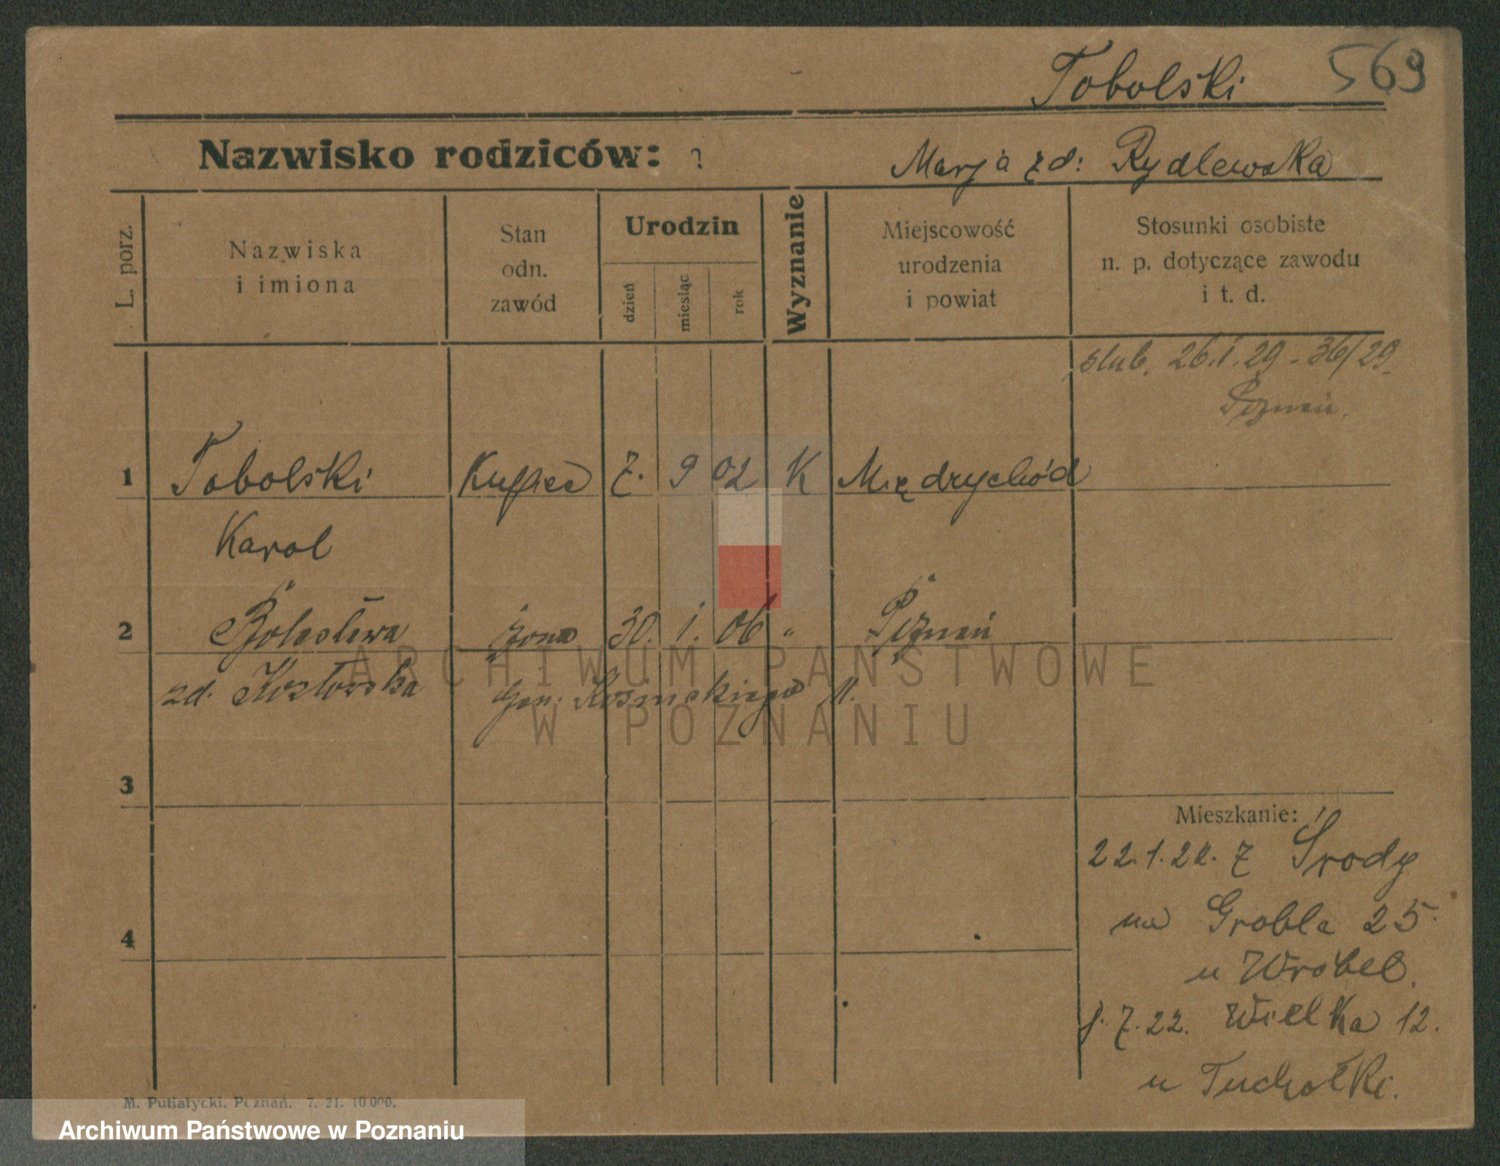 Tobolski 569
Nazwisko rodziców: ? Marja zd: Rydlewska
L. porz.
Nazwiska
i imiona
Stan
odn.
zawód
Urodzin
dzień
miesiąc
rok
Wyznanie
Miejscowość
urodzenia
i powiat
Stosunki osobiste
n. p. dotyczące zawodu
i t. d.
slub. 26.1.29 - 36/29.
Poznań.
1 Tobolski Kupiec 7. 9 02 K Międzychód
Karol
2 Bolesława żona 30. 1. 06 " Poznań
zd. Kozłowska
gen. Kosińskiego 11.
3
Mieszkanie:
22.1.22. z Środy
na Grobla 25.
u Wróbel.
4
1.7.22. Wielka 12.
u Tucholki.
M. Putiatycki, Poznań. 7. 21. 10 000.
ARCHIWUM PAŃSTWOWE
W POZNANIU
Archiwum Państwowe w Poznaniu